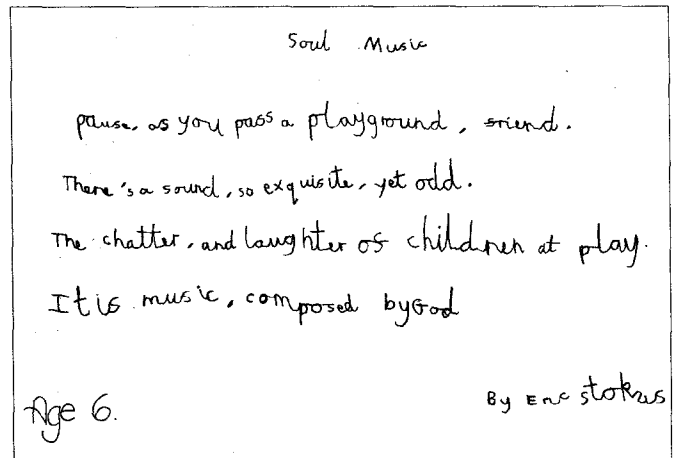 Soul Music
pause, as you pass a playground, friend.
There's a sound, so exquisite, yet odd.
The chatter, and laughter of children at play.
It is music, composed by God
By Eric Stokes
Age 6.